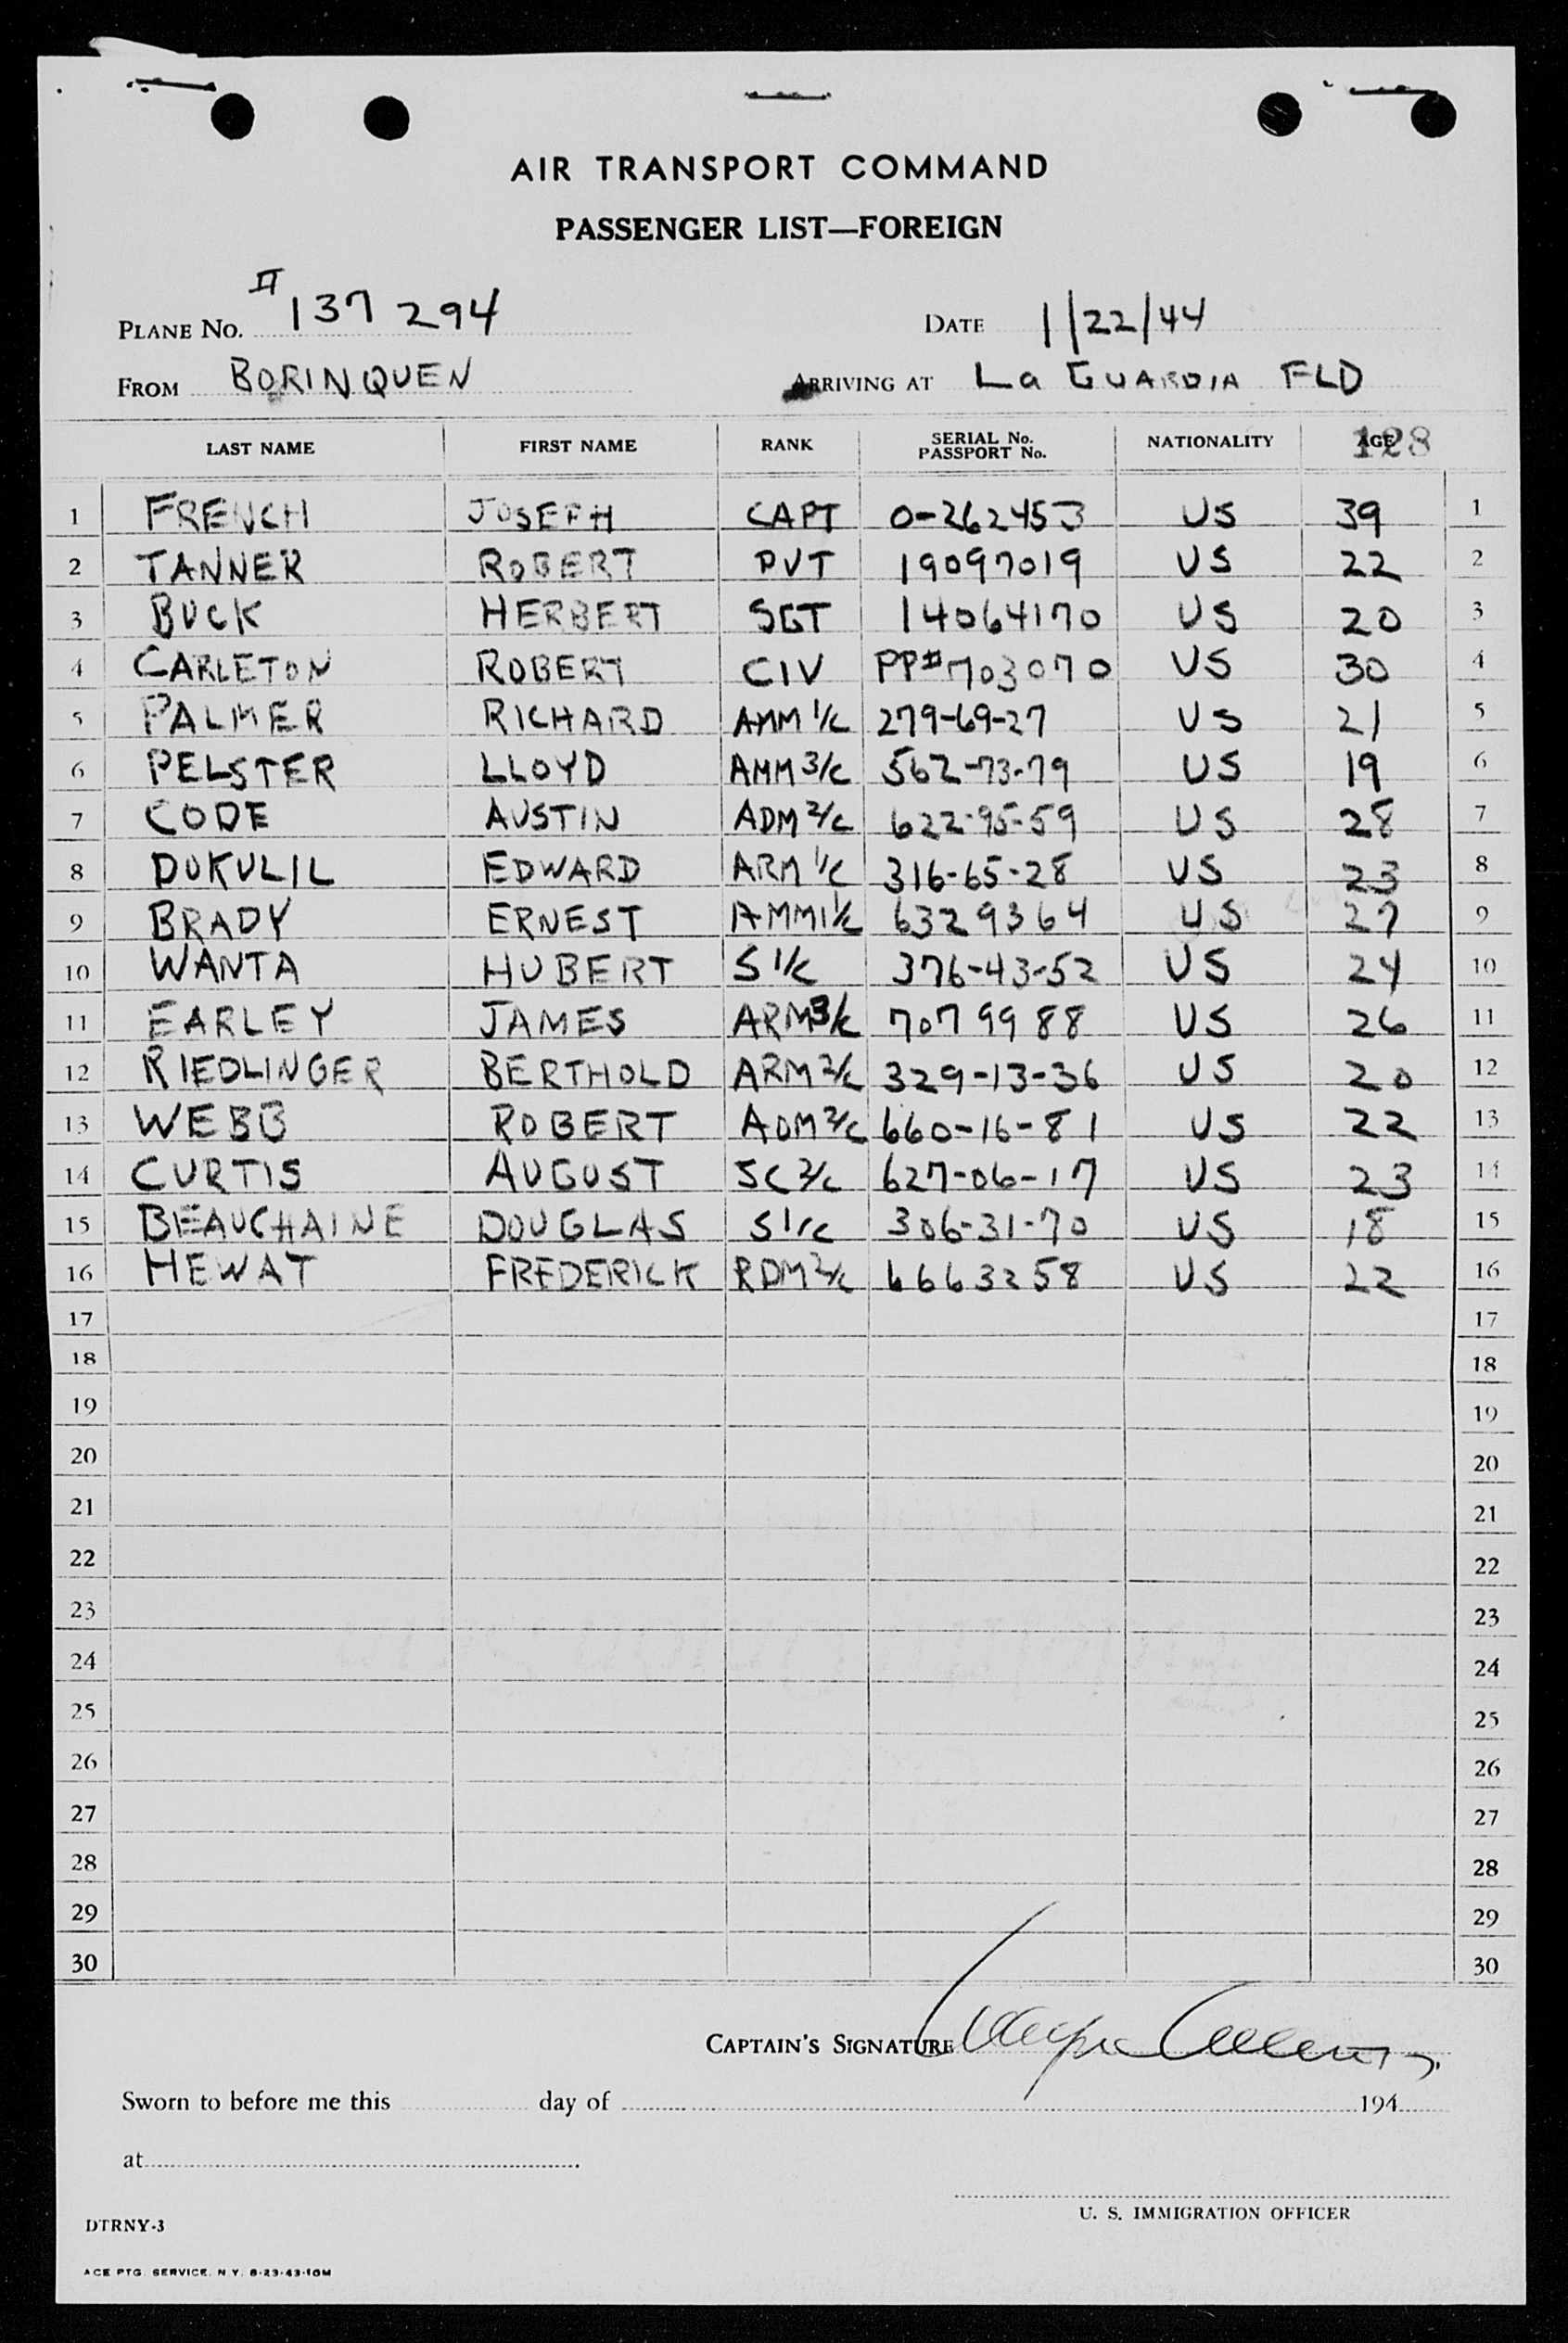 AIR TRANSPORT COMMAND
PASSENGER LIST—FOREIGN
PLANE No. # 137 294 DATE 1/22/44
FROM BORINQUEN ARRIVING AT La GUARDIA FLD
LAST NAME FIRST NAME RANK SERIAL No. PASSPORT No. NATIONALITY AGE 128
1 FRENCH JOSEPH CAPT O-262453 US 39 1
2 TANNER ROBERT PVT 19097019 US 22 2
3 BUCK HERBERT SGT 14064170 US 20 3
4 CARLETON ROBERT CIV PP# 703070 US 30 4
5 PALMER RICHARD AMM 1/c 279-69-27 US 21 5
6 PELSTER LLOYD AMM 3/c 562-73-79 US 19 6
7 CODE AUSTIN ADM 2/c 622-95-59 US 28 7
8 DUKULIL EDWARD ARM 1/c 316-65-28 US 23 8
9 BRADY ERNEST AMM 1/c 6329364 US 27 9
10 WANTA HUBERT S 1/c 376-43-52 US 24 10
11 EARLEY JAMES ARM 3/c 7079988 US 26 11
12 RIEDLINGER BERTHOLD ARM 2/c 329-13-36 US 20 12
13 WEBB ROBERT AOM 2/c 660-16-81 US 22 13
14 CURTIS AUGUST SC 2/c 627-06-17 US 23 14
15 BEAUCHAINE DOUGLAS S 1/c 306-31-70 US 18 15
16 HEWAT FREDERICK RDM 2/c 6663258 US 22 16
17 17
18 18
19 19
20 20
21 21
22 22
23 23
24 24
25 25
26 26
27 27
28 28
29 29
30 30
CAPTAIN'S SIGNATURE
Sworn to before me this day of 194
at
U. S. IMMIGRATION OFFICER
DTRNY-3
ACE PTG. SERVICE. N Y. 8-23-43-10M